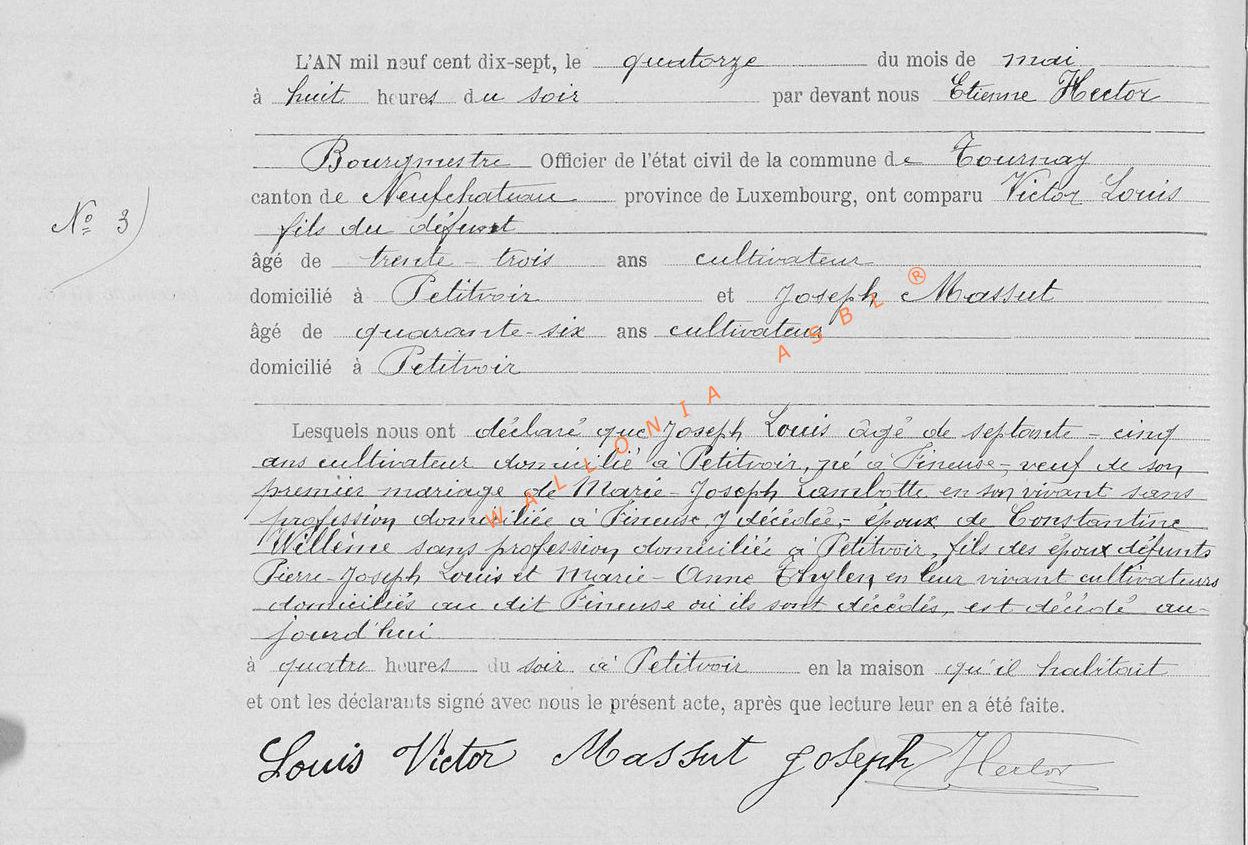 L'AN mil neuf cent dix-sept, le quatorze du mois de mai
à huit heures du soir par devant nous Etienne Hector
Bourgmestre Officier de l'état civil de la commune de Tournay
canton de Neufchateau province de Luxembourg, ont comparu Victor Louis
No 3)
fils du défunt
âgé de trente-trois ans cultivateur
domicilié à Petitvoir et Joseph Massut
âgé de quarante-six ans cultivateur
domicilié à Petitvoir
Lesquels nous ont déclaré que Joseph Louis âgé de septante-cinq
ans cultivateur domicilié à Petitvoir, né à Fineuse, veuf de son
premier mariage de Marie-Joseph Lambotte en son vivant sans
profession domiciliée à Fineuse y décédée, époux de Constantine
Willème sans profession domiciliée à Petitvoir, fils des époux défunts
Pierre-Joseph Louis et Marie-Anne Thylen, en leur vivant cultivateurs
domiciliés au dit Fineuse où ils sont décédés, est décédé au-
jourd'hui
à quatre heures du soir à Petitvoir en la maison qu'il habitait
et ont les déclarants signé avec nous le présent acte, après que lecture leur en a été faite.
Louis Victor Massut Joseph Hector
WALLONIA ASBL ®